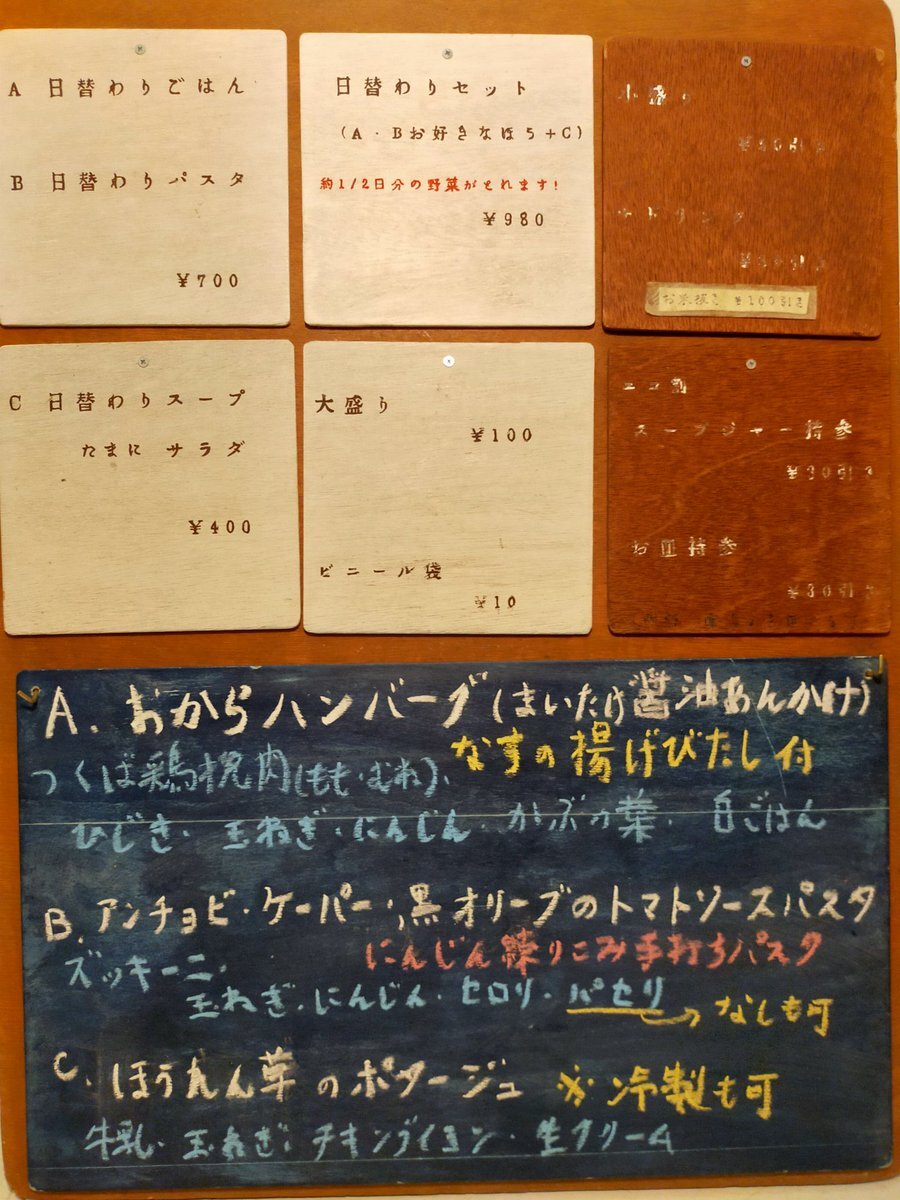 A 日替わりごはん
B 日替わりパスタ
¥700
日替わりセット
(A・Bお好きなほう+C)
約1/2日分の野菜がとれます!
¥980
小盛り
お米抜き ¥100引き
C 日替わりスープ
たまに サラダ
¥400
大盛り
¥100
ビニール袋
¥10
エコ割
スープジャー持参
¥30引き
お皿持参
¥30引き
A. おからハンバーグ(まいたけ醤油あんかけ)
なすの揚げびたし付
つくば鶏挽肉(もも・むね)、
ひじき・玉ねぎ・にんじん・かぶの葉・白ごはん
B. アンチョビ・ケーパー・黒オリーブのトマトソースパスタ
にんじん練りこみ手打ちパスタ
ズッキーニ・
玉ねぎ・にんじん・セロリ・パセリ
→なしも可
C. ほうれん草のポタージュ ※冷製も可
牛乳・玉ねぎ・チキンブイヨン・生クリーム